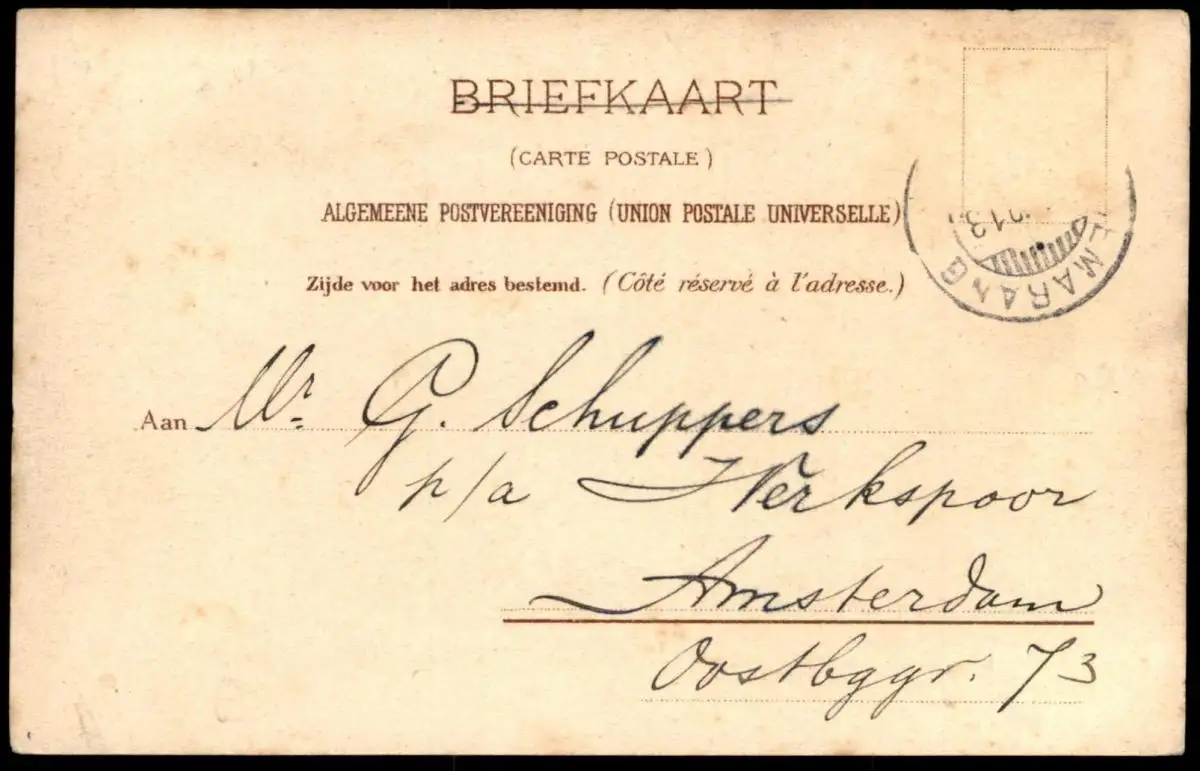 BRIEFKAART
(CARTE POSTALE)
ALGEMEENE POSTVEREENIGING (UNION POSTALE UNIVERSELLE)
Zijde voor het adres bestemd. (Côté réservé à l'adresse.)
EMARANG
Aan Mr. G. Schuppers
p/a Werkspoor
Amsterdam
Oostbggr. 73